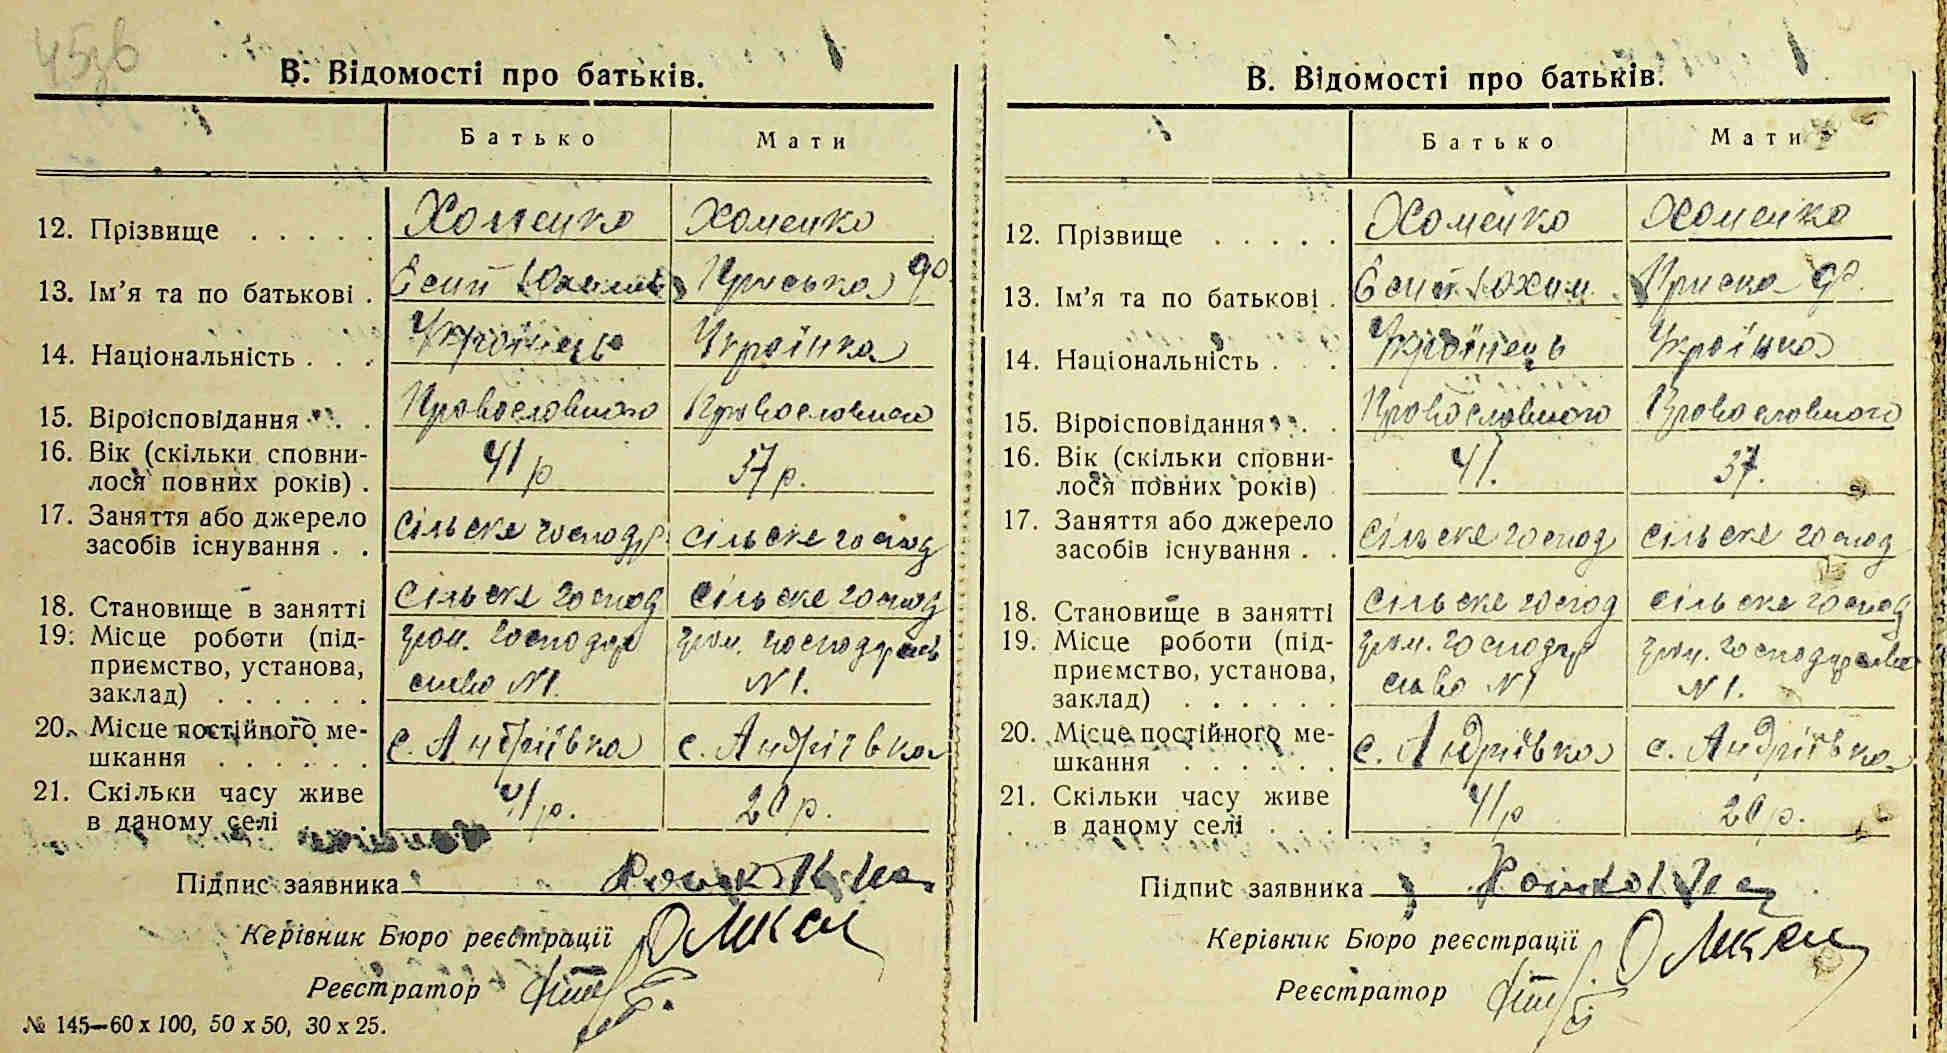 45зв
В. Відомості про батьків.
Батько Мати
12. Прізвище . . . . . Хоменко Хоменко
13. Ім'я та по батькові . Єсип Юхимів Приська
14. Національність . . . Українець Українка
15. Віроісповідання . . . Православного Православного
16. Вік (скільки сповни-
лося повних років) . 41 р 37 р.
17. Заняття або джерело
засобів існування . . Сільске господр Сільске господ
18. Становище в занятті Сільске господ Сільске господ
19. Місце роботи (під- гром. господар гром. господарств
приємство, установа,
заклад) . . . . . . ство №1. №1.
20. Місце постійного ме-
шкання . . . . . . с. Андріївка с. Андріївка
21. Скільки часу живе
в даному селі 41 р. 20 р.
Підпис заявника
Керівник Бюро реєстрації
Реєстратор
№ 145—60 х 100, 50 х 50, 30 х 25.
В. Відомості про батьків.
Батько Мати
12. Прізвище . . . . . Хоменко Хоменко
13. Ім'я та по батькові . Єсип Юхим Приска
14. Національність . . . Українець Українка
15. Віроісповідання . . . Православного Православного
16. Вік (скільки сповни-
лося повних років) 41. 37.
17. Заняття або джерело
засобів існування . . Сільске господ Сільске господ
18. Становище в занятті Сільске господ Сільске господ
19. Місце роботи (під- гром. господар гром. господарство
приємство, установа,
заклад) . . . . . . ство №1 №1.
20. Місце постійного ме-
шкання . . . . . . с. Андріївка с. Андріївка
21. Скільки часу живе
в даному селі . . . 41 р 20 р.
Підпис заявника
Керівник Бюро реєстрації
Реєстратор